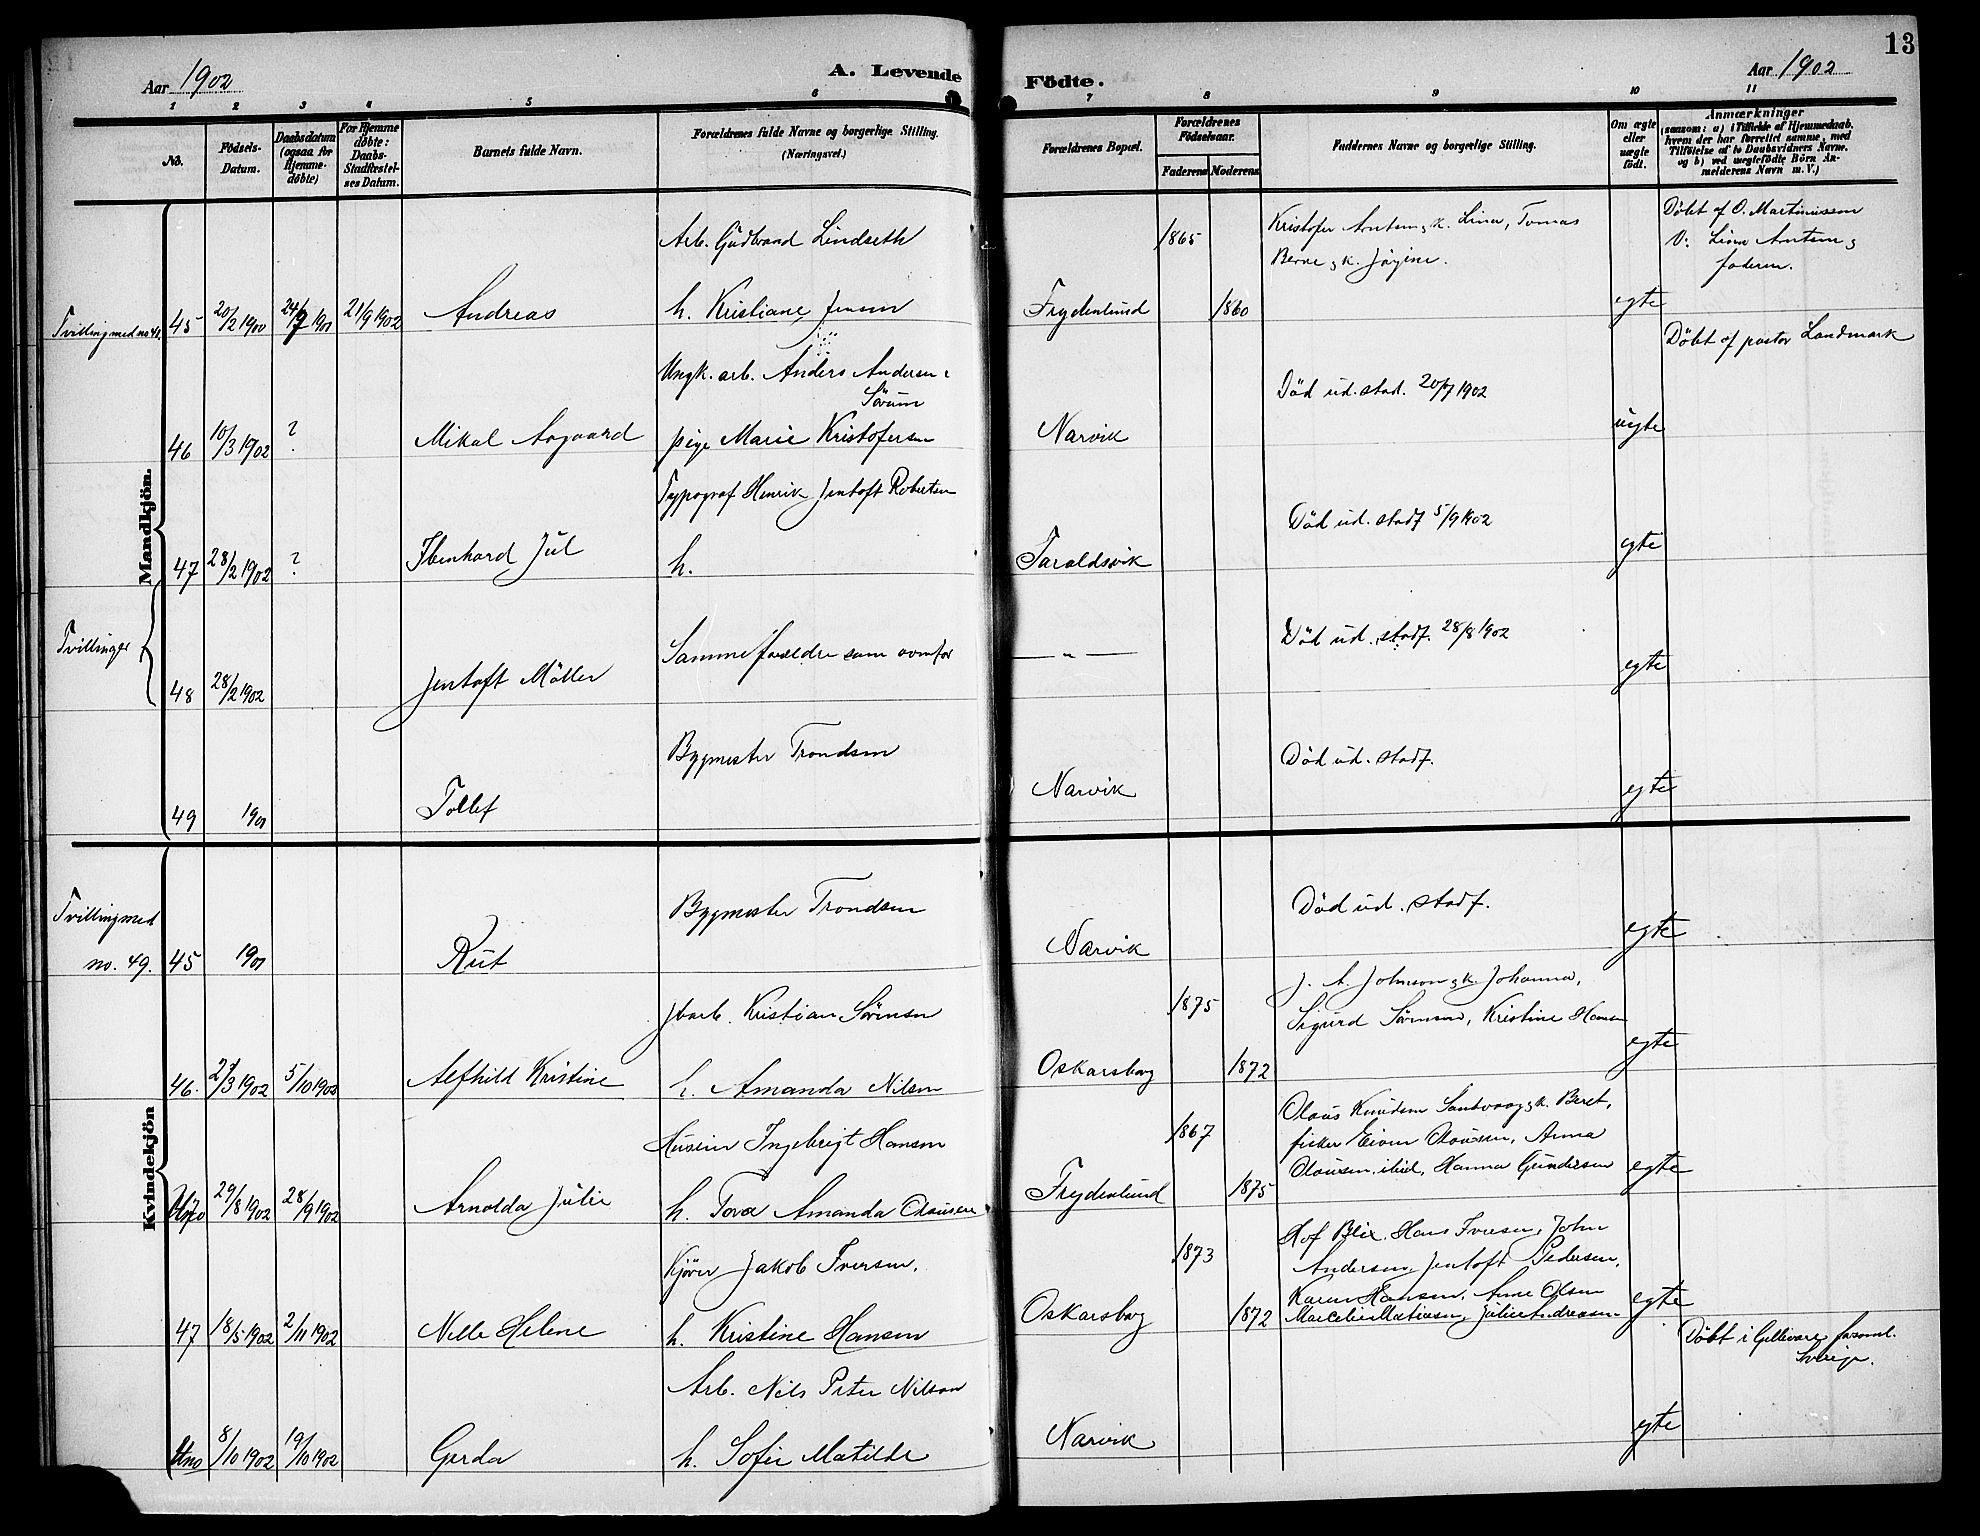 13
Aar 1902
A. Levende Födte.
Aar 1902
1 2 3 4 5 6 7 8 9 10 11
No.
Födsels-Datum.
Daabsdatum (ogsaa for Hjemme-döbte)
For Hjemme döbte: Daabs-Stadfæstel-ses Datum.
Barnets fulde Navn.
Forældrenes fulde Navne og borgerlige Stilling.
(Næringsvei.)
Forældrenes Bopæl.
Forældrenes Födselsaar.
Faderens Moderens
Faddernes Navne og borgerlige Stilling.
Om ægte eller uægte födt.
Anmærkninger
(saasom: a) i Tilfælde af Hjemmedaab, hvem der har forrettet samme, med Tilföielse af to Daabsvidners Navne, og b) ved uægtefödte Börn Anmelderens Navn m. V.)
Mandkjön.
Arb. Gudbrand Lindseth
1865
Kristofer Arntsen, k. Lina, Tomas
Berne, k. Jörgine.
Döbt af O. Martinussen
V: Lina Arntsen,
faderen.
Tvilling med no 45 20/2 1900 24/7 1901 21/9 1902 Andreas h. Kristiane Jensen Frydenlund 1860 egte
Döbt af pastor Landmark
Ungk. arb. Anders Andersen
Sörum
Död ud. stad. 20/7 1902
46 10/3 1902 ? Mikal Aagaard pige Marie Kristofersen Narvik uegte
Typograf Henrik Jentoft Robertsen
Död ud. stadf 5/9 1902
47 28/2 1902 ? Ibenhard Jul h. Taraldsvik egte
Tvillinger
Samme forældre som ovenfor
— " —
Död ud. stadf. 28/8 1902
48 28/2 1902 Jentoft Möller egte
Bygmester Trondsen
Död ud. stadf.
49 1901 Tollef Narvik egte
Kvindekjön
Tvilling med
Bygmester Trondsen
Död ud. stadf.
no. 49. 45 1901 Rut Narvik egte
Jbarb. Kristian Sörensen
1875
J. A. Johnson, k. Johanna,
Sigurd Sörensen, Kristine Hansen
46. 27/3 1902 5/10 1902 Alfhild Kristine h. Amanda Nilsen Oskarsborg 1872 egte
Huseier Ingebrigt Hansen
1867
Olaus Knudsen Sandvaag, k. Beret,
fisker Eivin Olausen, Anna
Olausen, Hanna Gundersen
29/8 1902 28/9 1902 Arnolda Julie h. Tova Amanda Olausen Frydenlund 1875 egte
Kjörer Jakob Iversen.
1873
Hof Blix, Hans Iversen, John
Andersen, Jentoft Pedersen,
Karen Hansen, Anne Olsen
47 18/5 1902 2/11 1902 Nelle Helene h. Kristine Hansen Oskarsborg 1872 Marcelie Matisen, Julie Andreasen egte
Döbt i Gellivare forsaml.
Sverige.
Arb. Nils Peter Nilson
8/10 1902 19/10 1902 Gerda h. Sofie Matilde Narvik egte